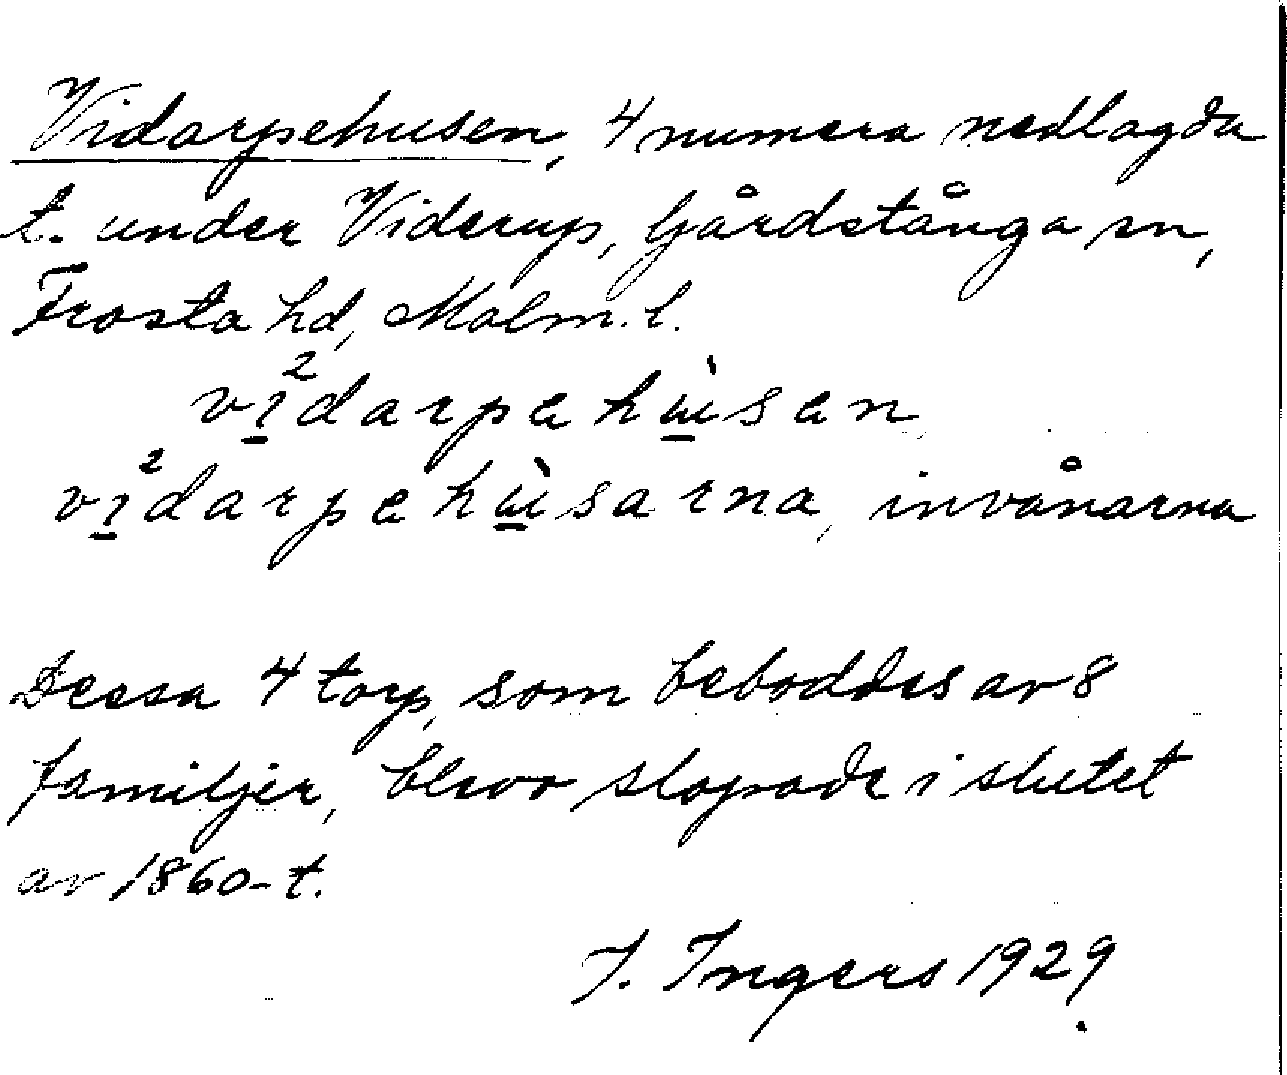 Vidarpehusen, 4 numera nedlagda
t. under Viderup, Gårdstånga sn,
Frosta hd, Malm. l.
vi̱²darpehù̱sen
vi̱²darpehù̱sarna, invånarna
Dessa 4 torp, som beboddes av 8
familjer, blevo slopade i slutet
av 1860-t.
I. Ingers 1929.